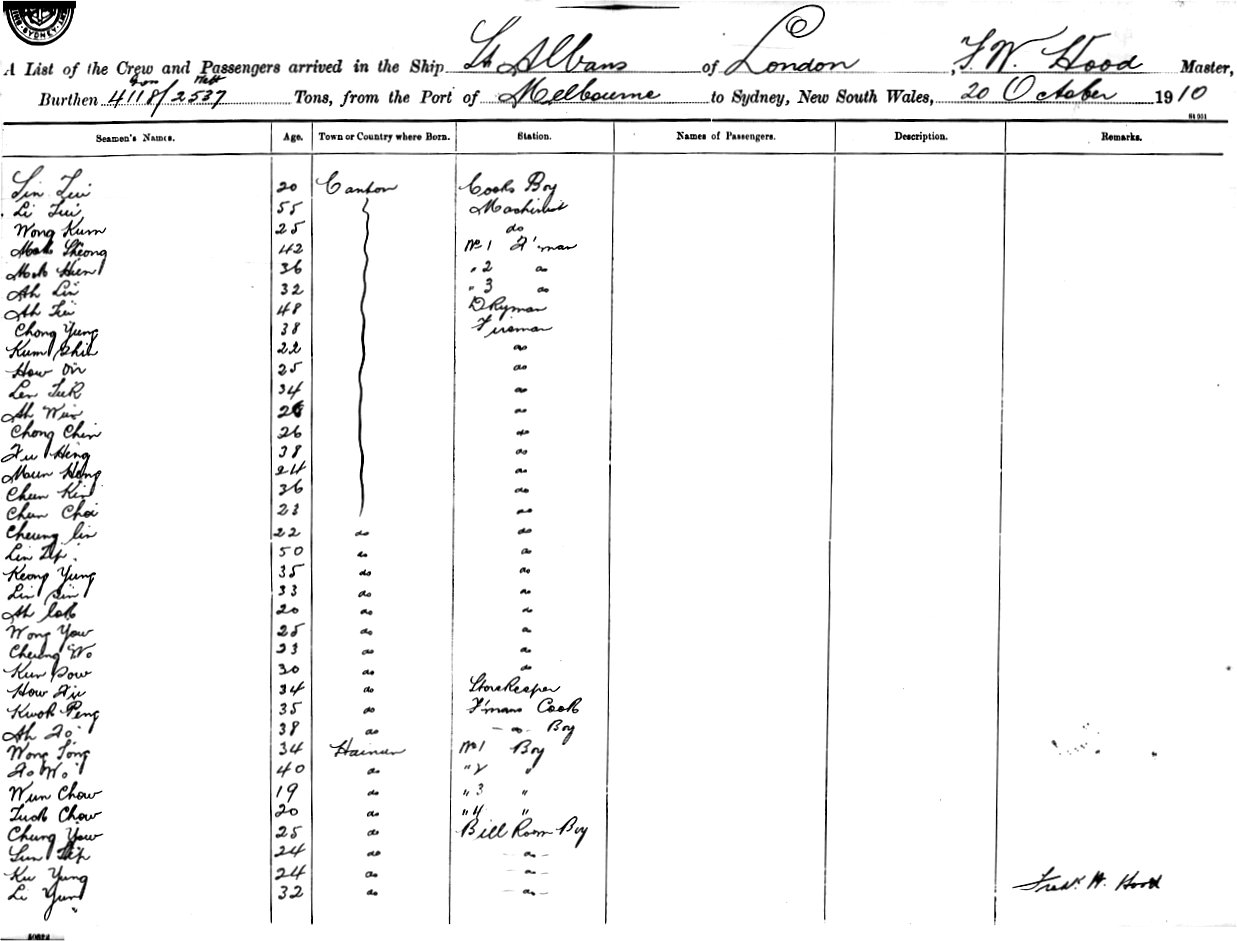 SYDNEY
A List of the Crew and Passengers arrived in the Ship St Albans of London, F. W. Hood Master,
Burthen 4118/2537 Tons, from the Port of Melbourne to Sydney, New South Wales, 20 October 1910
Seamen's Names. Age. Town or Country where Born. Station. Names of Passengers. Description. Remarks.
Lin 20 Canton Cooks Boy
Li 55
Wong Kum 25 do
Mak Cheong 42 No 1 F'man
Mak Hien 36 " 2 do
Ah Lin 32 " 3 do
Ah 48 DKyman
Chong Yung 38 Fireman
Kum Shil 22 do
How On 25 do
Len Tuk 34 do
Ah Win do
Chong Chin 26 do
Fu Hing 38 do
Maun Hong 24 do
Chun Kin 36 do
Chun Choi 23 do
Cheung lin 22 do do
Lin 50 do do
Keong Yung 35 do do
Lin Sin 33 do do
Ah 20 do do
Wong Yow 25 do do
Cheung Wo 23 do do
Kun Sow 30 do do
How Fu 34 do Storekeeper
Kwok Peng 35 do F'mans Cook
Ah Fo 38 do - do - Boy
Wong Song 34 Hainan No 1 Boy
Fo Wo 40 do " 2 "
Wun Chow 19 do " 3 "
Tuck Chow 20 do " 4 "
Chung Yow 25 do Bill Room Boy
Sun 24 do - do -
Ku Yung 24 do - do -
Li Yun 32 do - do -
Fredk W. Hood